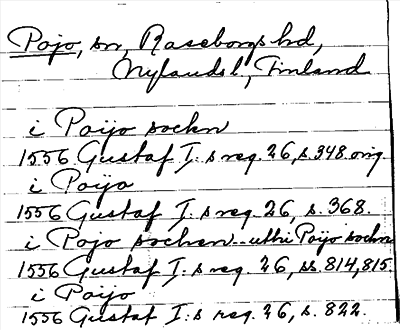 Pojo, sn, Raseborgs hd,
Nylands l., Finland
i Poijo sockn
1556 Gustaf I:s reg. 26, s. 348. orig.
i Poijo
1556 Gustaf I:s reg. 26, s. 368.
i Pojo sochen - uthi Poijo sockn
1556 Gustaf I:s reg. 26, ss. 814, 815.
i Poijo
1556 Gustaf I:s reg. 26, s. 822.